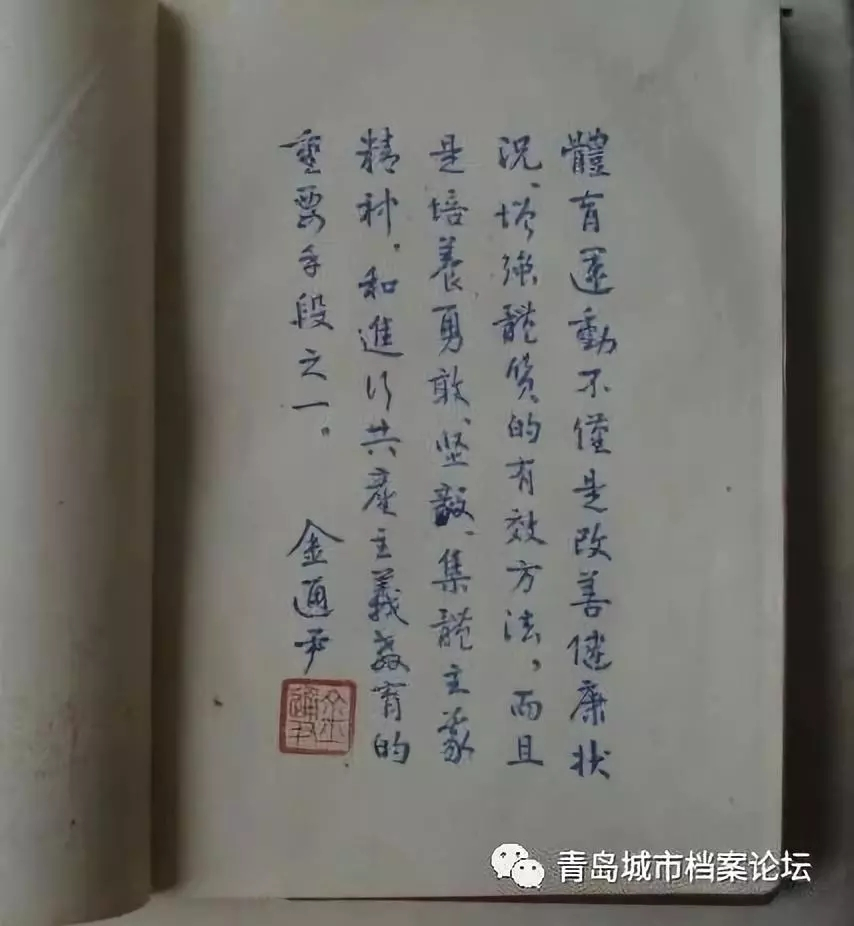 體育運動不僅是改善健康状
況、增強體質的有效方法，而且
是培養勇敢、坚毅、集體主義
精神，和進行共產主義教育的
重要手段之一。
金通尹
金通尹
青岛城市档案论坛